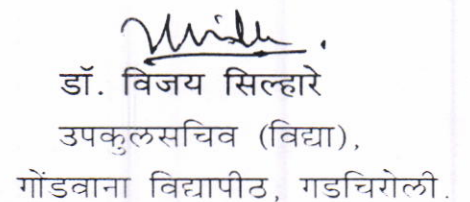 डॉ. विजय सिल्हारे
उपकुलसचिव (विद्या),
गोंडवाना विद्यापीठ, गडचिरोली.